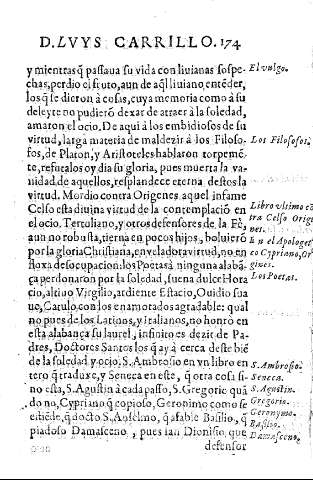 D. LVYS CARRILLO. 174
y mientras q̃ passaua su vida con liuianas sospe-
chas, perdio el fruto, aun de aq̃l liuiano, entẽder,
los q̃ se dieron à cosas, cuya memoria como à su
deleyte no pudierõ dexar de atraer à la soledad,
amaron el ocio. De aqui à los embidiosos de su
virtud, larga materia de maldezir à los Filoso-
fos, de Platon, y Aristoteles hablaron torpemẽ-
te, refutalos oy dia su gloria, pues muerta la va-
nidad de aquellos, resplandece eterna destos la
virtud. Mordio contra Origenes aquel infame
Celso esta diuina virtud de la contemplaciõ en
el ocio. Tertuliano, y otros defensores de la Fè,
aun no robusta, tierna en pocos hijos, boluierõ
por la gloria Christiana, en velador a virtud, no en
floxa desocupacion: los Poetas à ninguna alabã-
ça perdonaron por la soledad, suena dulce Hora
cio, altiuo Virgilio, ardiente Estacio, Ouidio sua
ue, Catulo con los enamorados agradable: qual
no pues de los Latinos, y Italianos, no honrò en
esta alabança su laurel, infinito es dezir de Pa-
dres, Doctores Santos los q̃ ay à cerca deste biẽ
de la soledad y ocio, S. Ambrosio en vn libro en
tero q̃ traduxe, y Seneca en este, q̃ otra cosa si-
no esta, S. Agustin à cada passo, S. Gregorio quã
do no, Cypriano q̃ copioso, Geronimo como se
entiẽde, q̃ docto S. Anselmo, q̃ afable Basilio, q̃
piadoso Damasceno, pues san Dionisio, que
defensor
El vulgo.
Los Filosofos.
Libro vltimo cõ
tra Celso Orige
nes.
En el Apologet
co Cypriano, Or
Los Poetas.
S. Ambrosio.
Seneca.
S. Agustin.
Gregorio.
Geronymo.
Basilio.
Damasceno.